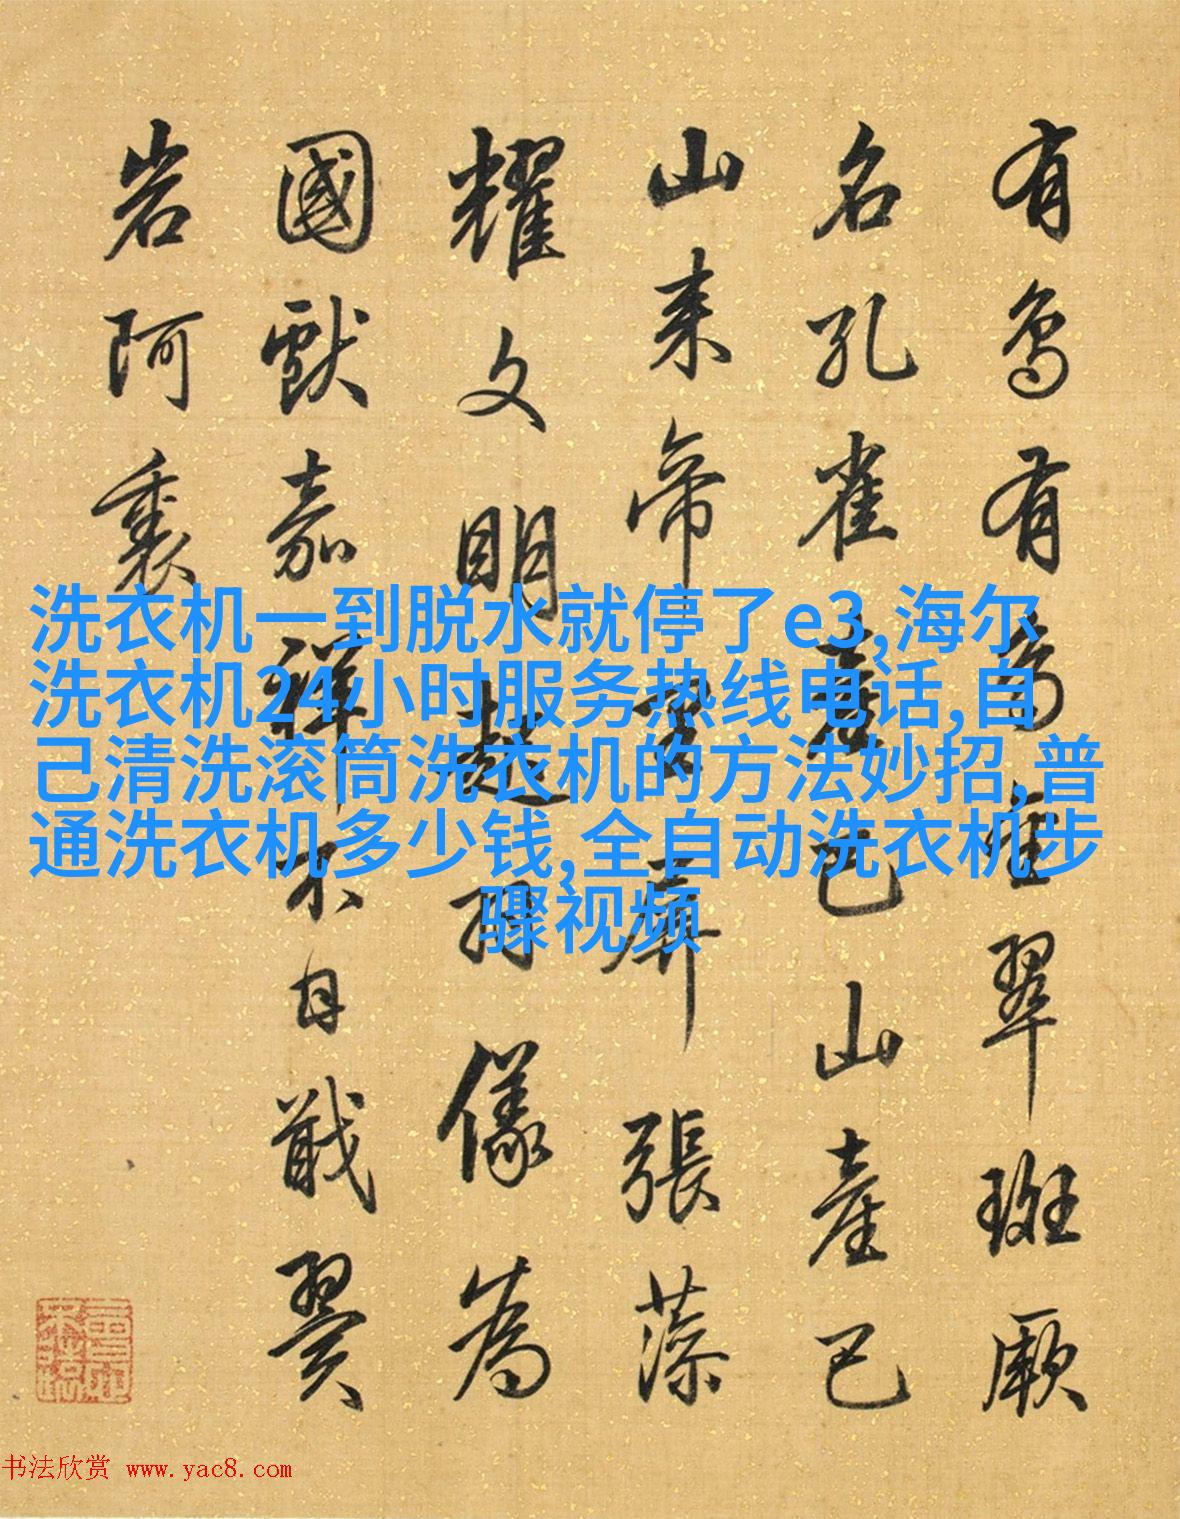 有鳥有鳥金翠斑厥
名孔雀巴山產巴
山来帝屏張藻
耀文明起羽儀為
國獻嘉祥不自戢翼
岩阿裏
洗衣机一到脱水就停了e3,海尔
洗衣机24小时服务热线电话,自
己清洗滚筒洗衣机的方法妙招,普
通洗衣机多少钱,全自动洗衣机步
骤视频
书法欣赏 www.yac8.com